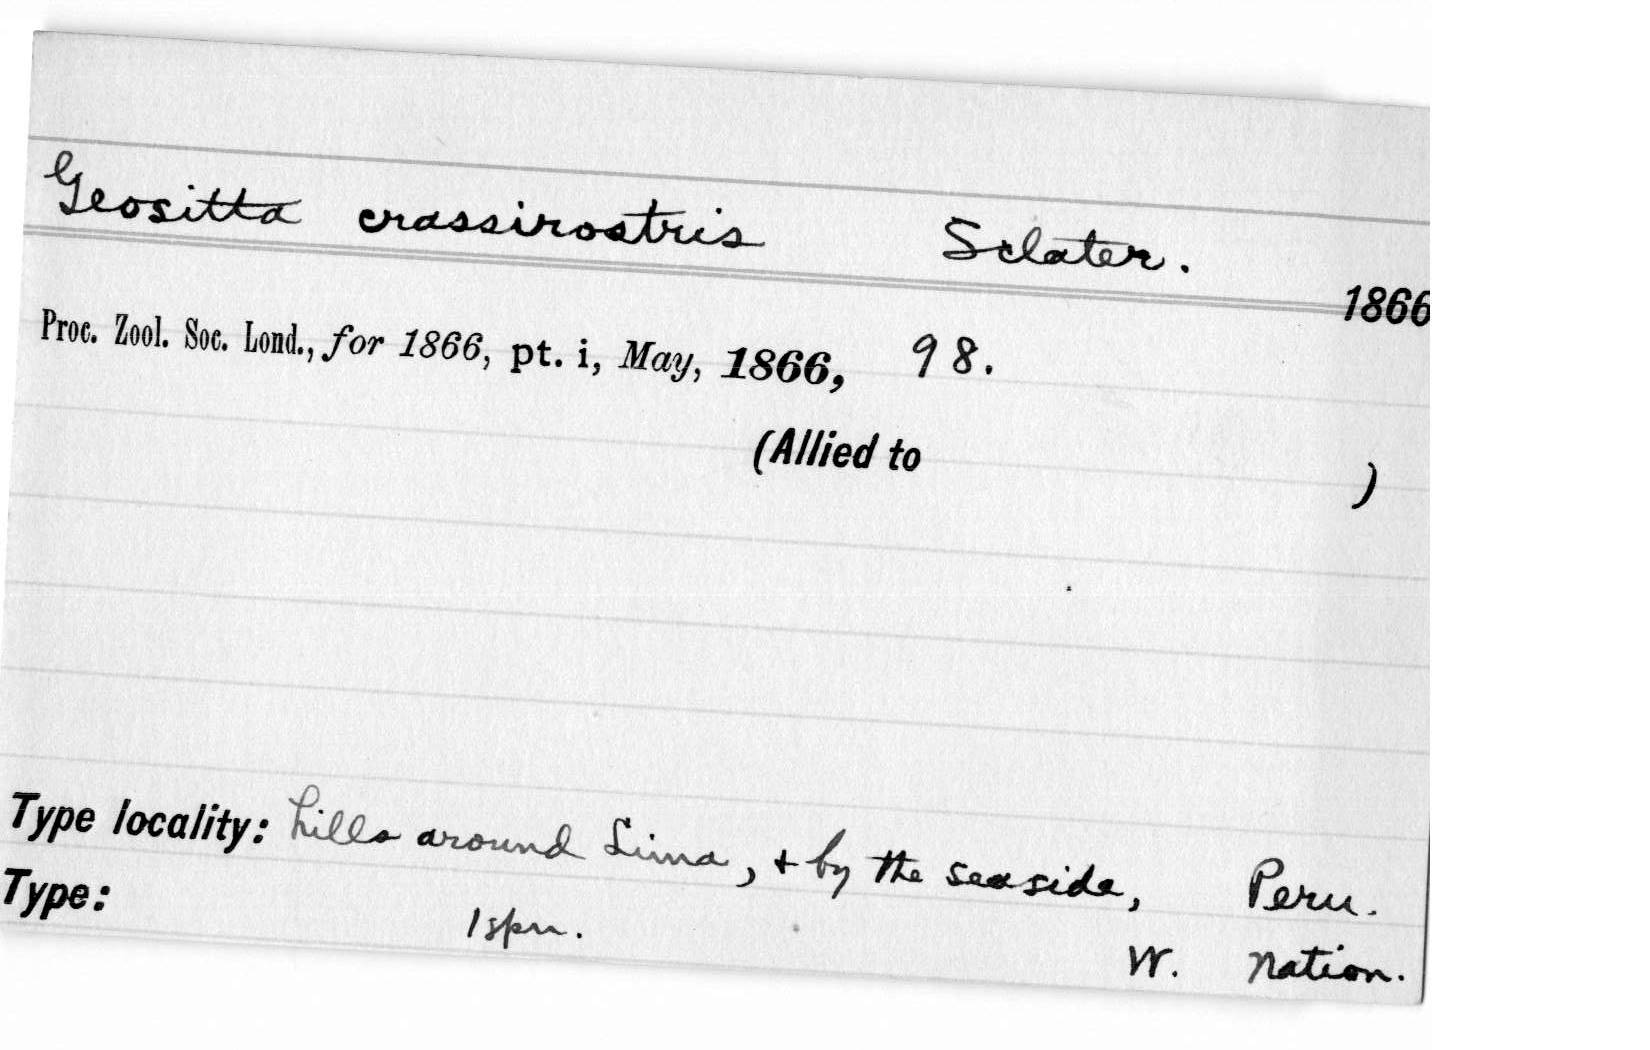 Geositta crassirostris Sclater.
1866
Proc. Zool. Soc. Lond., for 1866, pt. i, May, 1866, 98.
(Allied to )
Type locality: hills around Lima, + by the seaside, Peru.
Type: 1 spn. W. Nation.